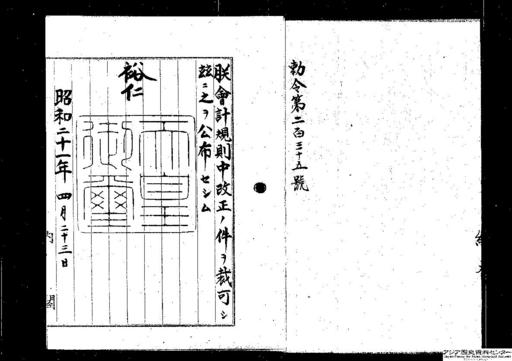 勅令第二百三十五號
朕會計規則中改正ノ件ヲ裁可シ
玆ニ之ヲ公布セシム
裕仁
天皇御璽
昭和二十一年四月二十三日
内閣
アジア歴史資料センター